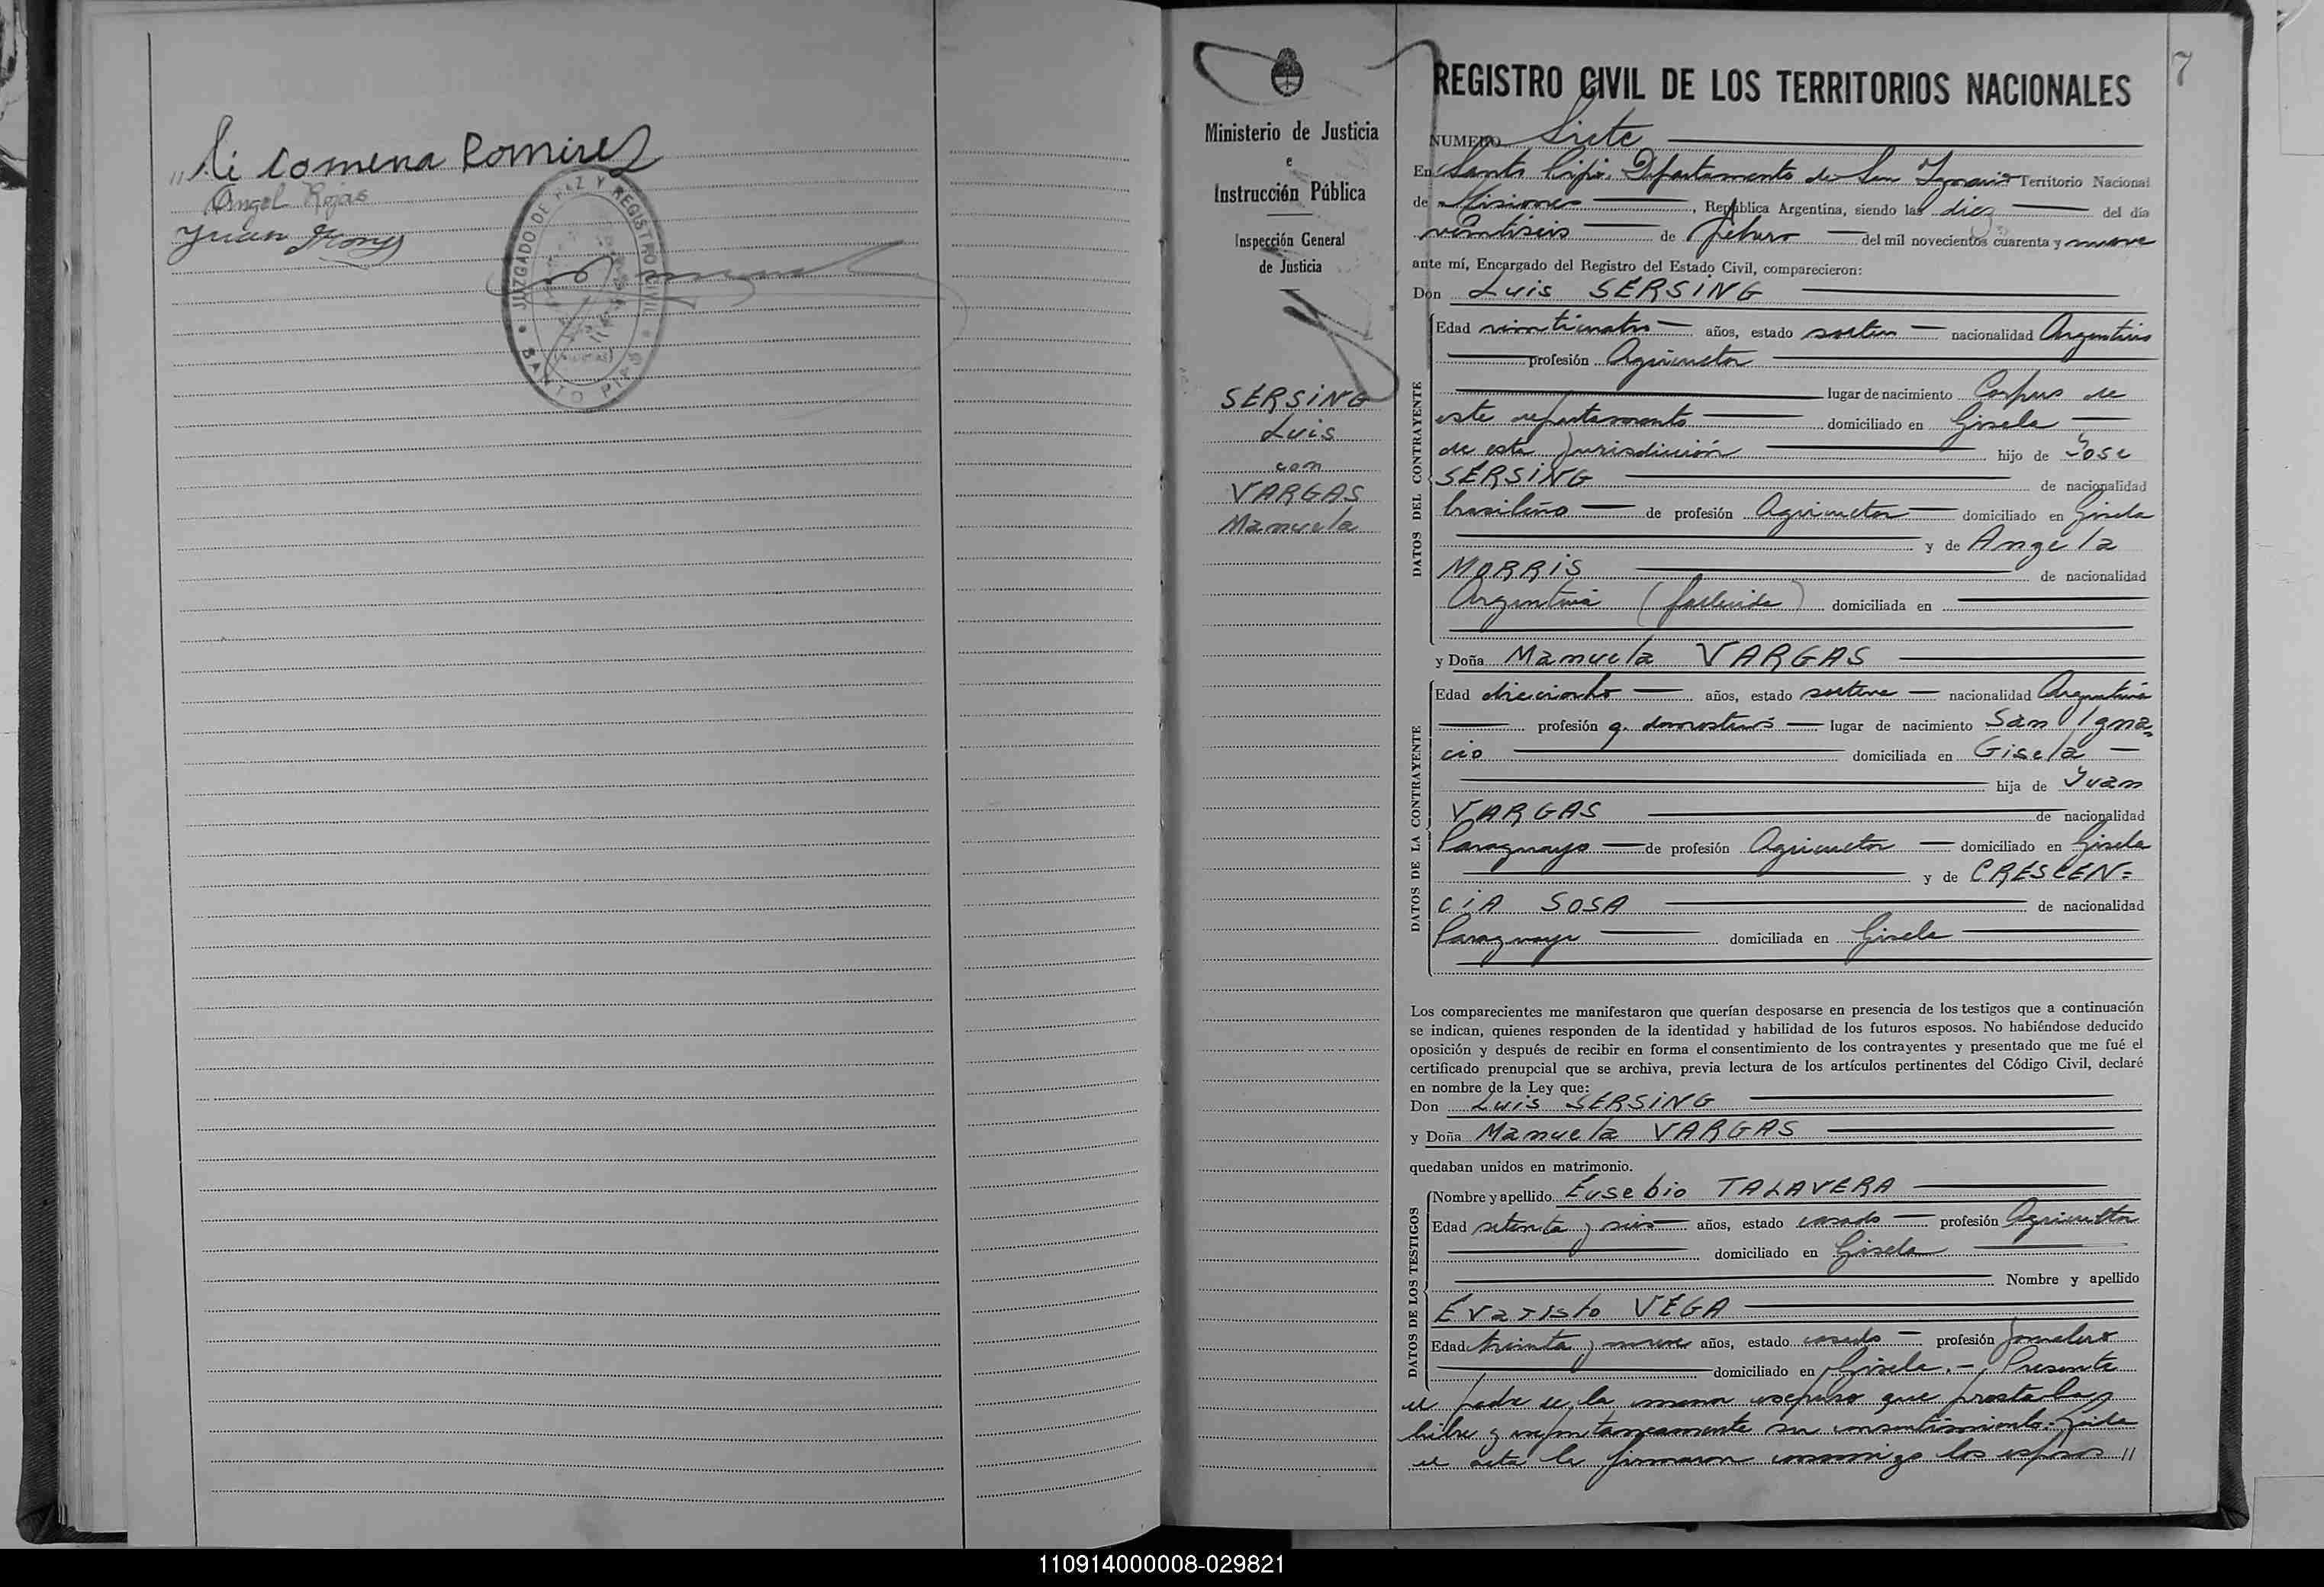 "Nicomena Romirez
Angel Rojas
Juan
JUZGADO DE PAZ Y REGISTRO CIVIL
SANTO PIPO
Ministerio de Justicia
e
Instrucción Pública
Inspección General
de Justicia
SERSING
Luis
con
VARGAS
Manuela
7
REGISTRO CIVIL DE LOS TERRITORIOS NACIONALES
NUMERO Siete
En Santo Pipó, Departamento de San Ignacio Territorio Nacional
de Misiones, República Argentina, siendo las diez del día
veintiseis de febrero del mil novecientos cuarenta y nueve
ante mí, Encargado del Registro del Estado Civil, comparecieron:
Don Luis SERSING
DATOS DEL CONTRAYENTE
Edad veinticuatro años, estado soltero nacionalidad Argentino
profesión Agricultor
lugar de nacimiento Corpus de
este departamento domiciliado en Gisela
de esta jurisdicción hijo de Jose
SERSING de nacionalidad
brasileño de profesión Agricultor domiciliado en Gisela
y de Angela
MORRIS de nacionalidad
Argentina (fallecida) domiciliada en
y Doña Manuela VARGAS
DATOS DE LA CONTRAYENTE
Edad dieciocho años, estado soltera nacionalidad Argentina
profesión q. domesticos lugar de nacimiento San Igna=
cio domiciliada en Gisela
hija de Juan
VARGAS de nacionalidad
Paraguayo de profesión Agricultor domiciliado en Gisela
y de CRESCEN=
CIA SOSA de nacionalidad
Paraguaya domiciliada en Gisela
Los comparecientes me manifestaron que querían desposarse en presencia de los testigos que a continuación
se indican, quienes responden de la identidad y habilidad de los futuros esposos. No habiéndose deducido
oposición y después de recibir en forma el consentimiento de los contrayentes y presentado que me fué el
certificado prenupcial que se archiva, previa lectura de los artículos pertinentes del Código Civil, declaré
en nombre de la Ley que:
Don Luis SERSING
y Doña Manuela VARGAS
quedaban unidos en matrimonio.
DATOS DE LOS TESTIGOS
Nombre y apellido Eusebio TALAVERA
Edad setenta y seis años, estado casado profesión Agricultor
domiciliado en Gisela
Nombre y apellido
Evaristo VEGA
Edad treinta y nueve años, estado casado profesión jornalero
domiciliado en Gisela.- Presente
el padre de la menor expuso que prestaba
libre y espontaneamente su consentimiento. Leida
el acta la firmaron conmigo los esposos //
110914000008-029821